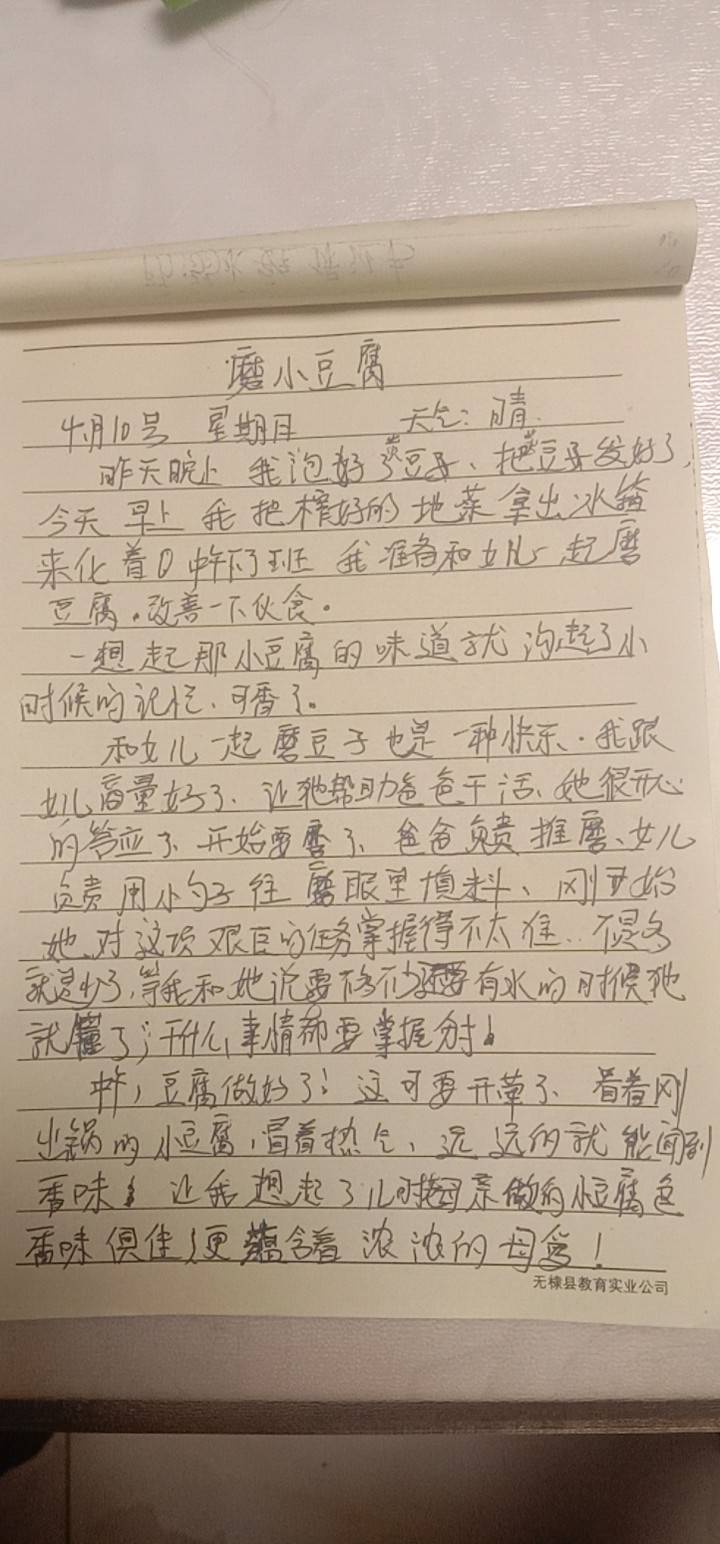 磨小豆腐
4月10号 星期日 天气:晴.
昨天晚上 我泡好了黄豆子、把黄豆子发好了,
今天早上 我把榨好的地菜拿出冰箱
来化着。中午下了班 我准备和女儿一起磨
豆腐。改善一下伙食。
一想起那小豆腐的味道就沟起了小
时候的记忆、可香了。
和女儿一起磨豆子也是一种快乐.我跟
女儿商量好了、让她帮助爸爸干活、她很开心
的答应了、开始要磨了、爸爸负责推磨、女儿
负责用小勺子往磨眼里填料、刚开始
她对这项艰巨的任务掌握得不太准..不是多
就是少了,等我和她说要不多不少还要有水的时候她
就懂了;干什么事情都要掌握分寸
中午,豆腐做好了!这可要开荤了、看着刚
出锅的小豆腐,冒着热气、远远的就能闻到
香味 让我想起了儿时母亲做的小豆腐色
香味俱佳,更蕴含着浓浓的母爱!
无棣县教育实业公司